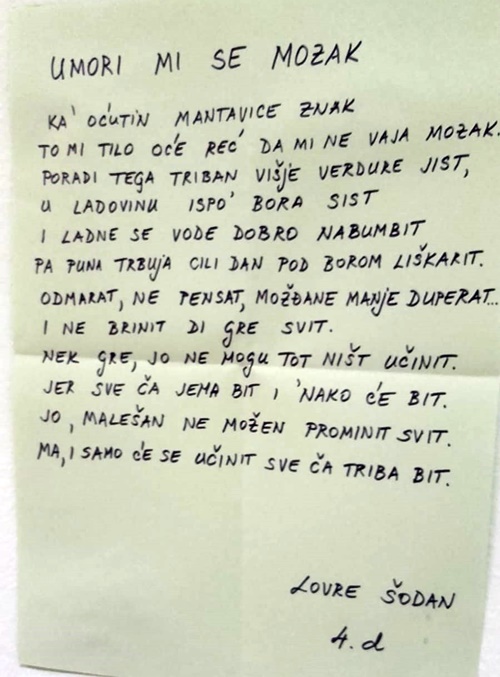 UMORI MI SE MOZAK
KA' OĆUTIN MANTAVICE ZNAK
TO MI TILO OĆE REĆ DA MI NE VAJA MOZAK.
PORADI TEGA TRIBAN VIŠJE VERDURE JIST,
U LADOVINU ISPO' BORA SIST
I LADNE SE VODE DOBRO NABUMBIT
PA PUNA TRBUJA CILI DAN POD BOROM LIŠKARIT.
ODMARAT, NE PENSAT, MOŽDANE MANJE DUPERAT...
I NE BRINIT DI GRE SVIT.
NEK GRE, JO NE MOGU TOT NIŠT UČINIT.
JER SVE ČA JEMA BIT I 'NAKO ĆE BIT.
JO, MALEŠAN NE MOŽEN PROMINIT SVIT.
MA, I SAMO ĆE SE UČINIT SVE ČA TRIBA BIT.
LOVRE ŠODAN
4. d